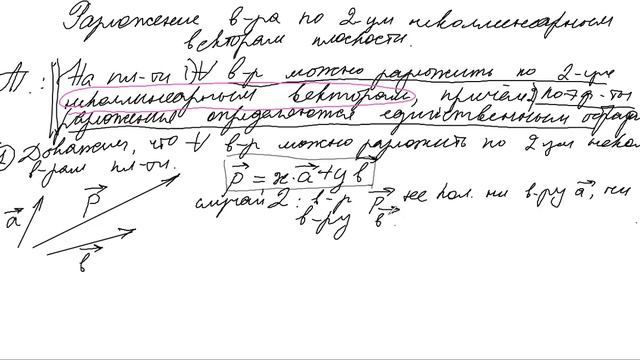 Разложение в-ра по 2-ум неколлинеарным
векторам плоскости.
Т.: На пл-ти 1) ∀ в-р можно разложить по 2-ум
неколлинеарным векторам, причём 2) коэф-ты
разложения определяются единственным образо
1) Докажем, что ∀ в-р можно разложить по 2-ум некол
в-рам пл-ти.
p = x·a + y b
случай 2: в-р p не кол. ни в-ру a, ни
в-ру b.
a
p
b